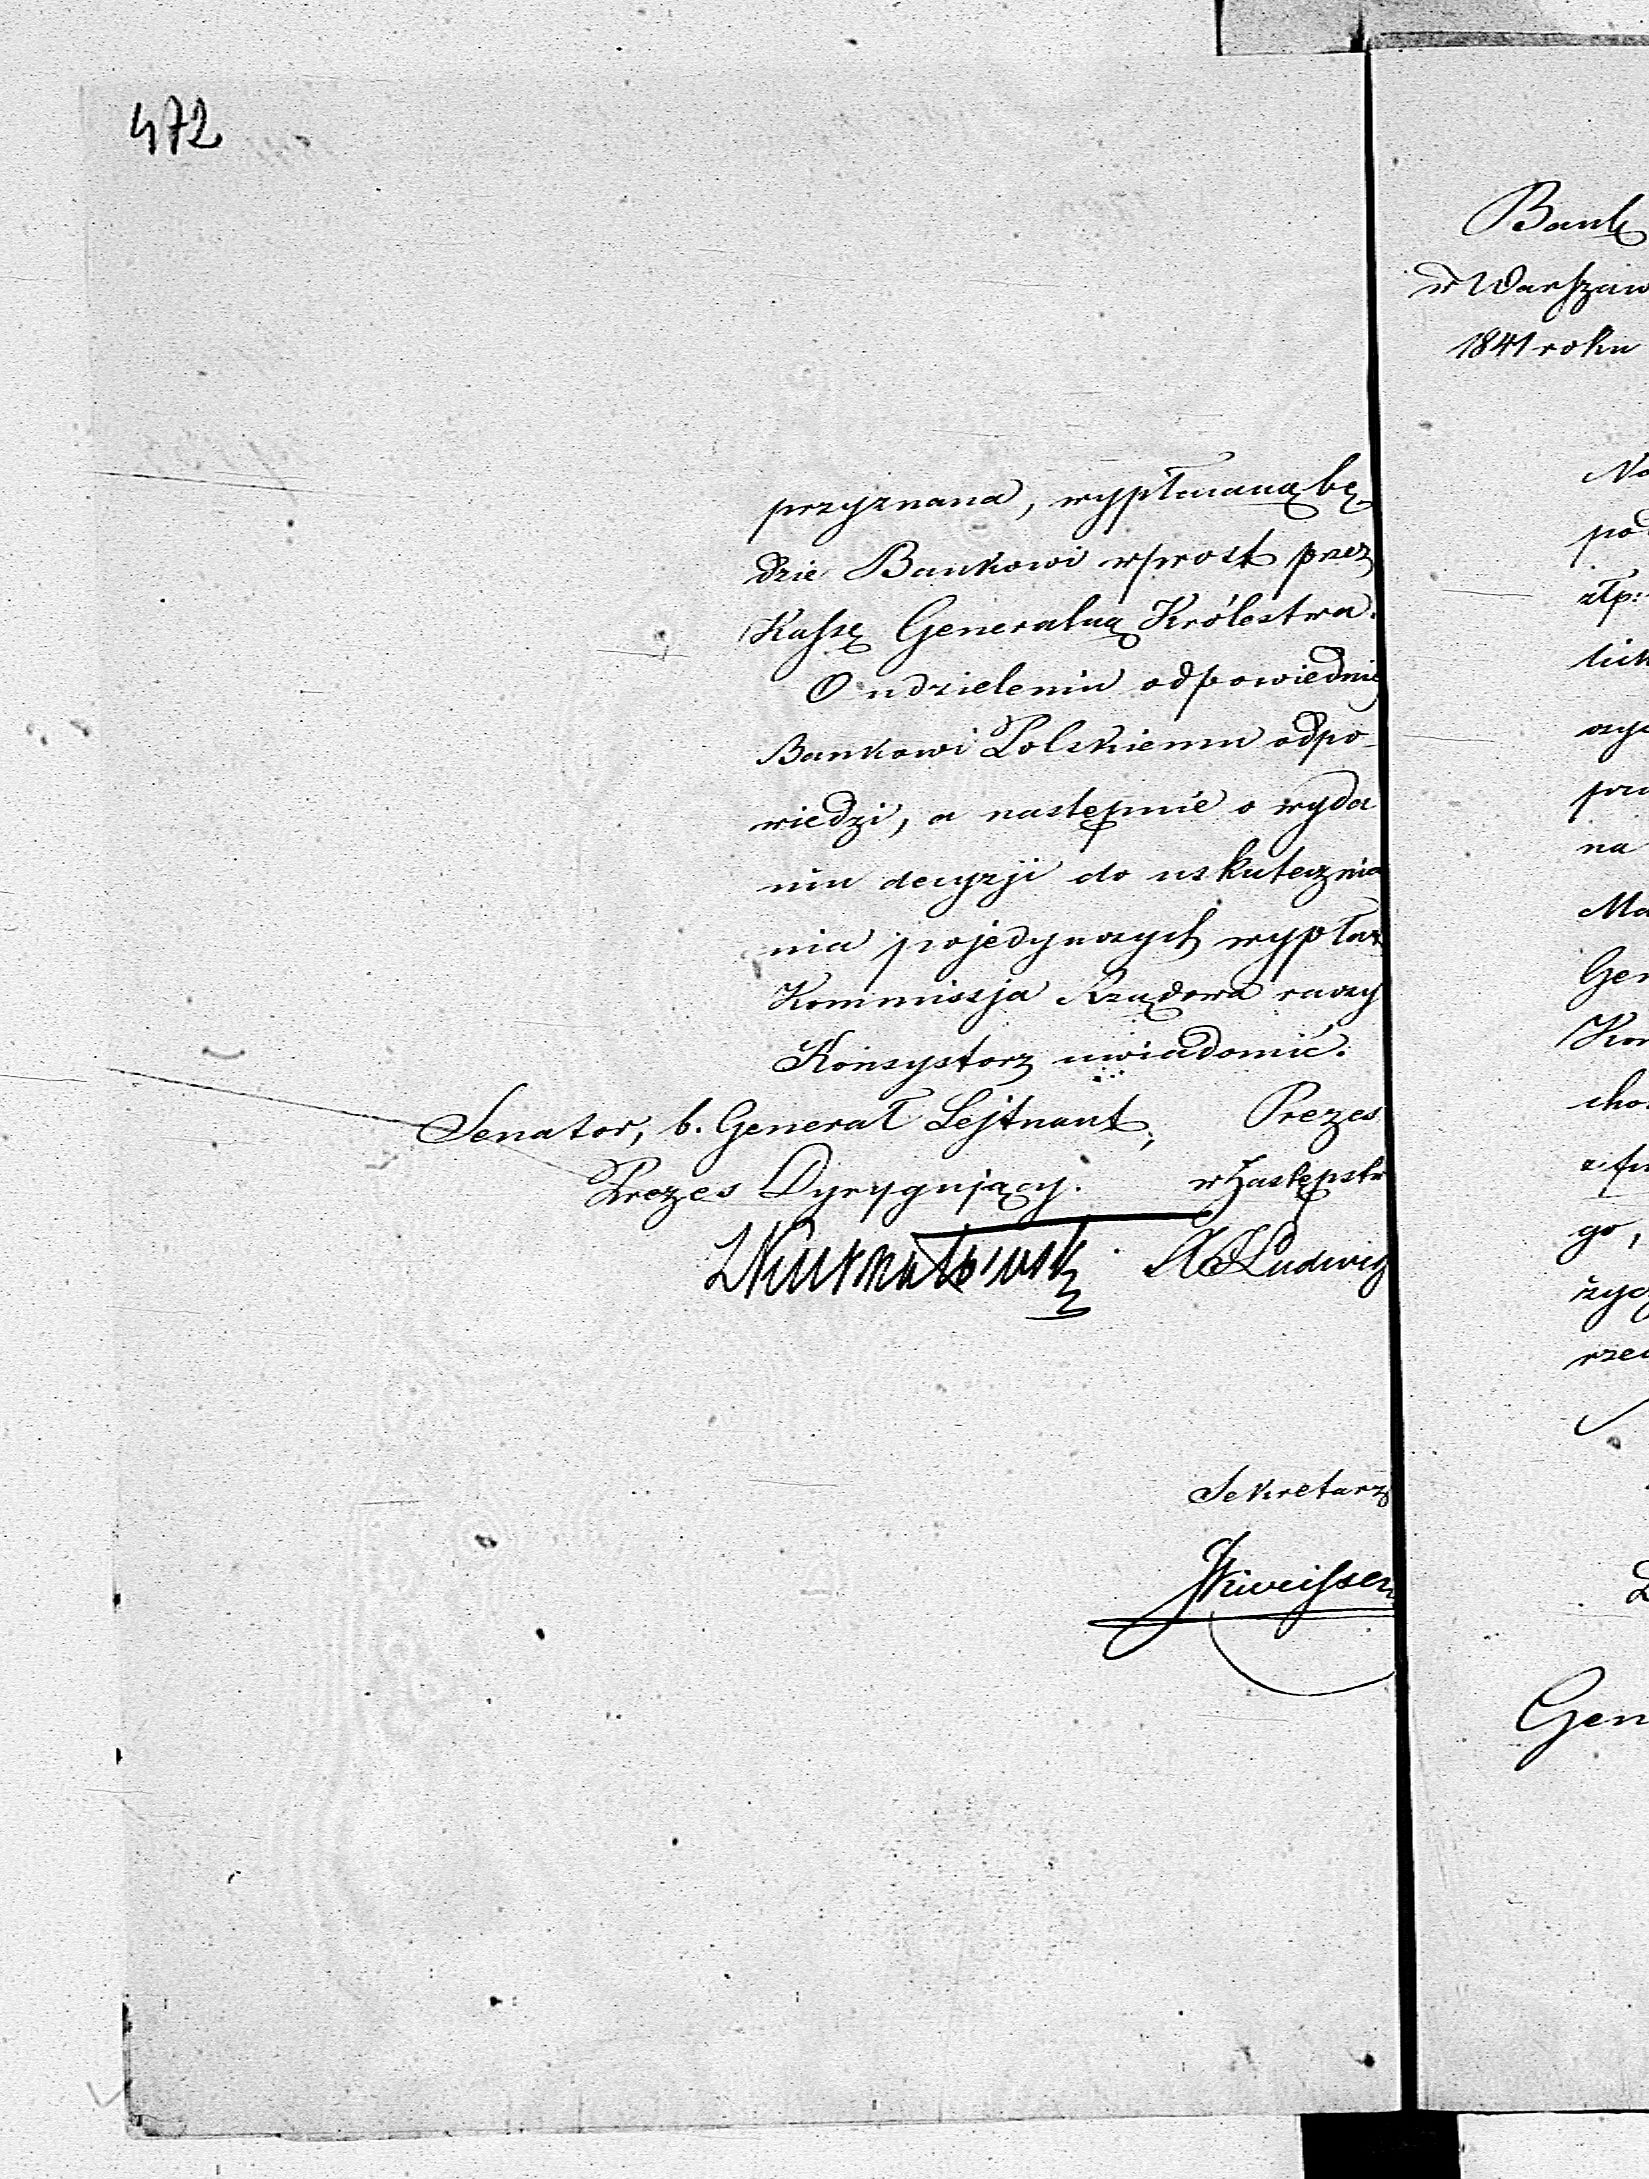 472
przyznana, wypłacaną bę-
dzie Bankowi wprost przez
Kassę Generalną Królestwa.
O udzieleniu odpowiedniej
Bankowi Polskiemu odpo-
wiedzi, a następnie o wyda
niu decyzji do uskutecznia
nia pojedynczych wypłat
Kommissja Rządowa raczy
Konsystorz uwiadomić.
Senator, b. Generał Lejtnant, Prezes
Prezes Dyrygujący. w Zastępstw
Kurnatowski Ludwig
Sekretarz
Bank
w Warszaw
1841 roku
No
pod
złp:
tuk
czyc
prz
na
Ma
Gen
Kom
cho
z fu
go,
życz
rzec
Gen